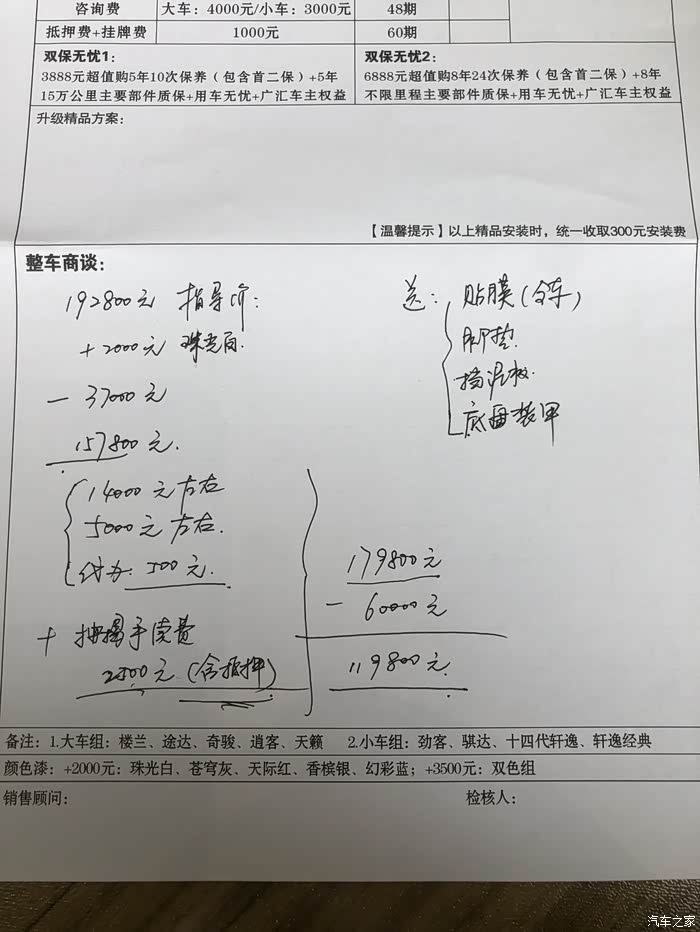 咨询费 大车：4000元/小车：3000元 48期
抵押费+挂牌费 1000元 60期
双保无忧1：
3888元超值购5年10次保养（包含首二保）+5年
15万公里主要部件质保+用车无忧+广汇车主权益
双保无忧2：
6888元超值购8年24次保养（包含首二保）+8年
不限里程主要部件质保+用车无忧+广汇车主权益
升级精品方案：
【温馨提示】以上精品安装时，统一收取300元安装费
整车商谈：
192800元 指导价：
+2000元 珠光白.
- 37000元
157800元.
14000元左右
5000元左右.
代办. 500元.
+ 按揭手续费
2500元(含抵押)
送： 贴膜(全车)
脚垫.
挡泥板.
底盘装甲
179800元
- 60000元
119800元.
备注：1.大车组：楼兰、途达、奇骏、逍客、天籁 2.小车组：劲客、骐达、十四代轩逸、轩逸经典
颜色漆：+2000元：珠光白、苍穹灰、天际红、香槟银、幻彩蓝；+3500元：双色组
销售顾问： 检核人：
汽车之家